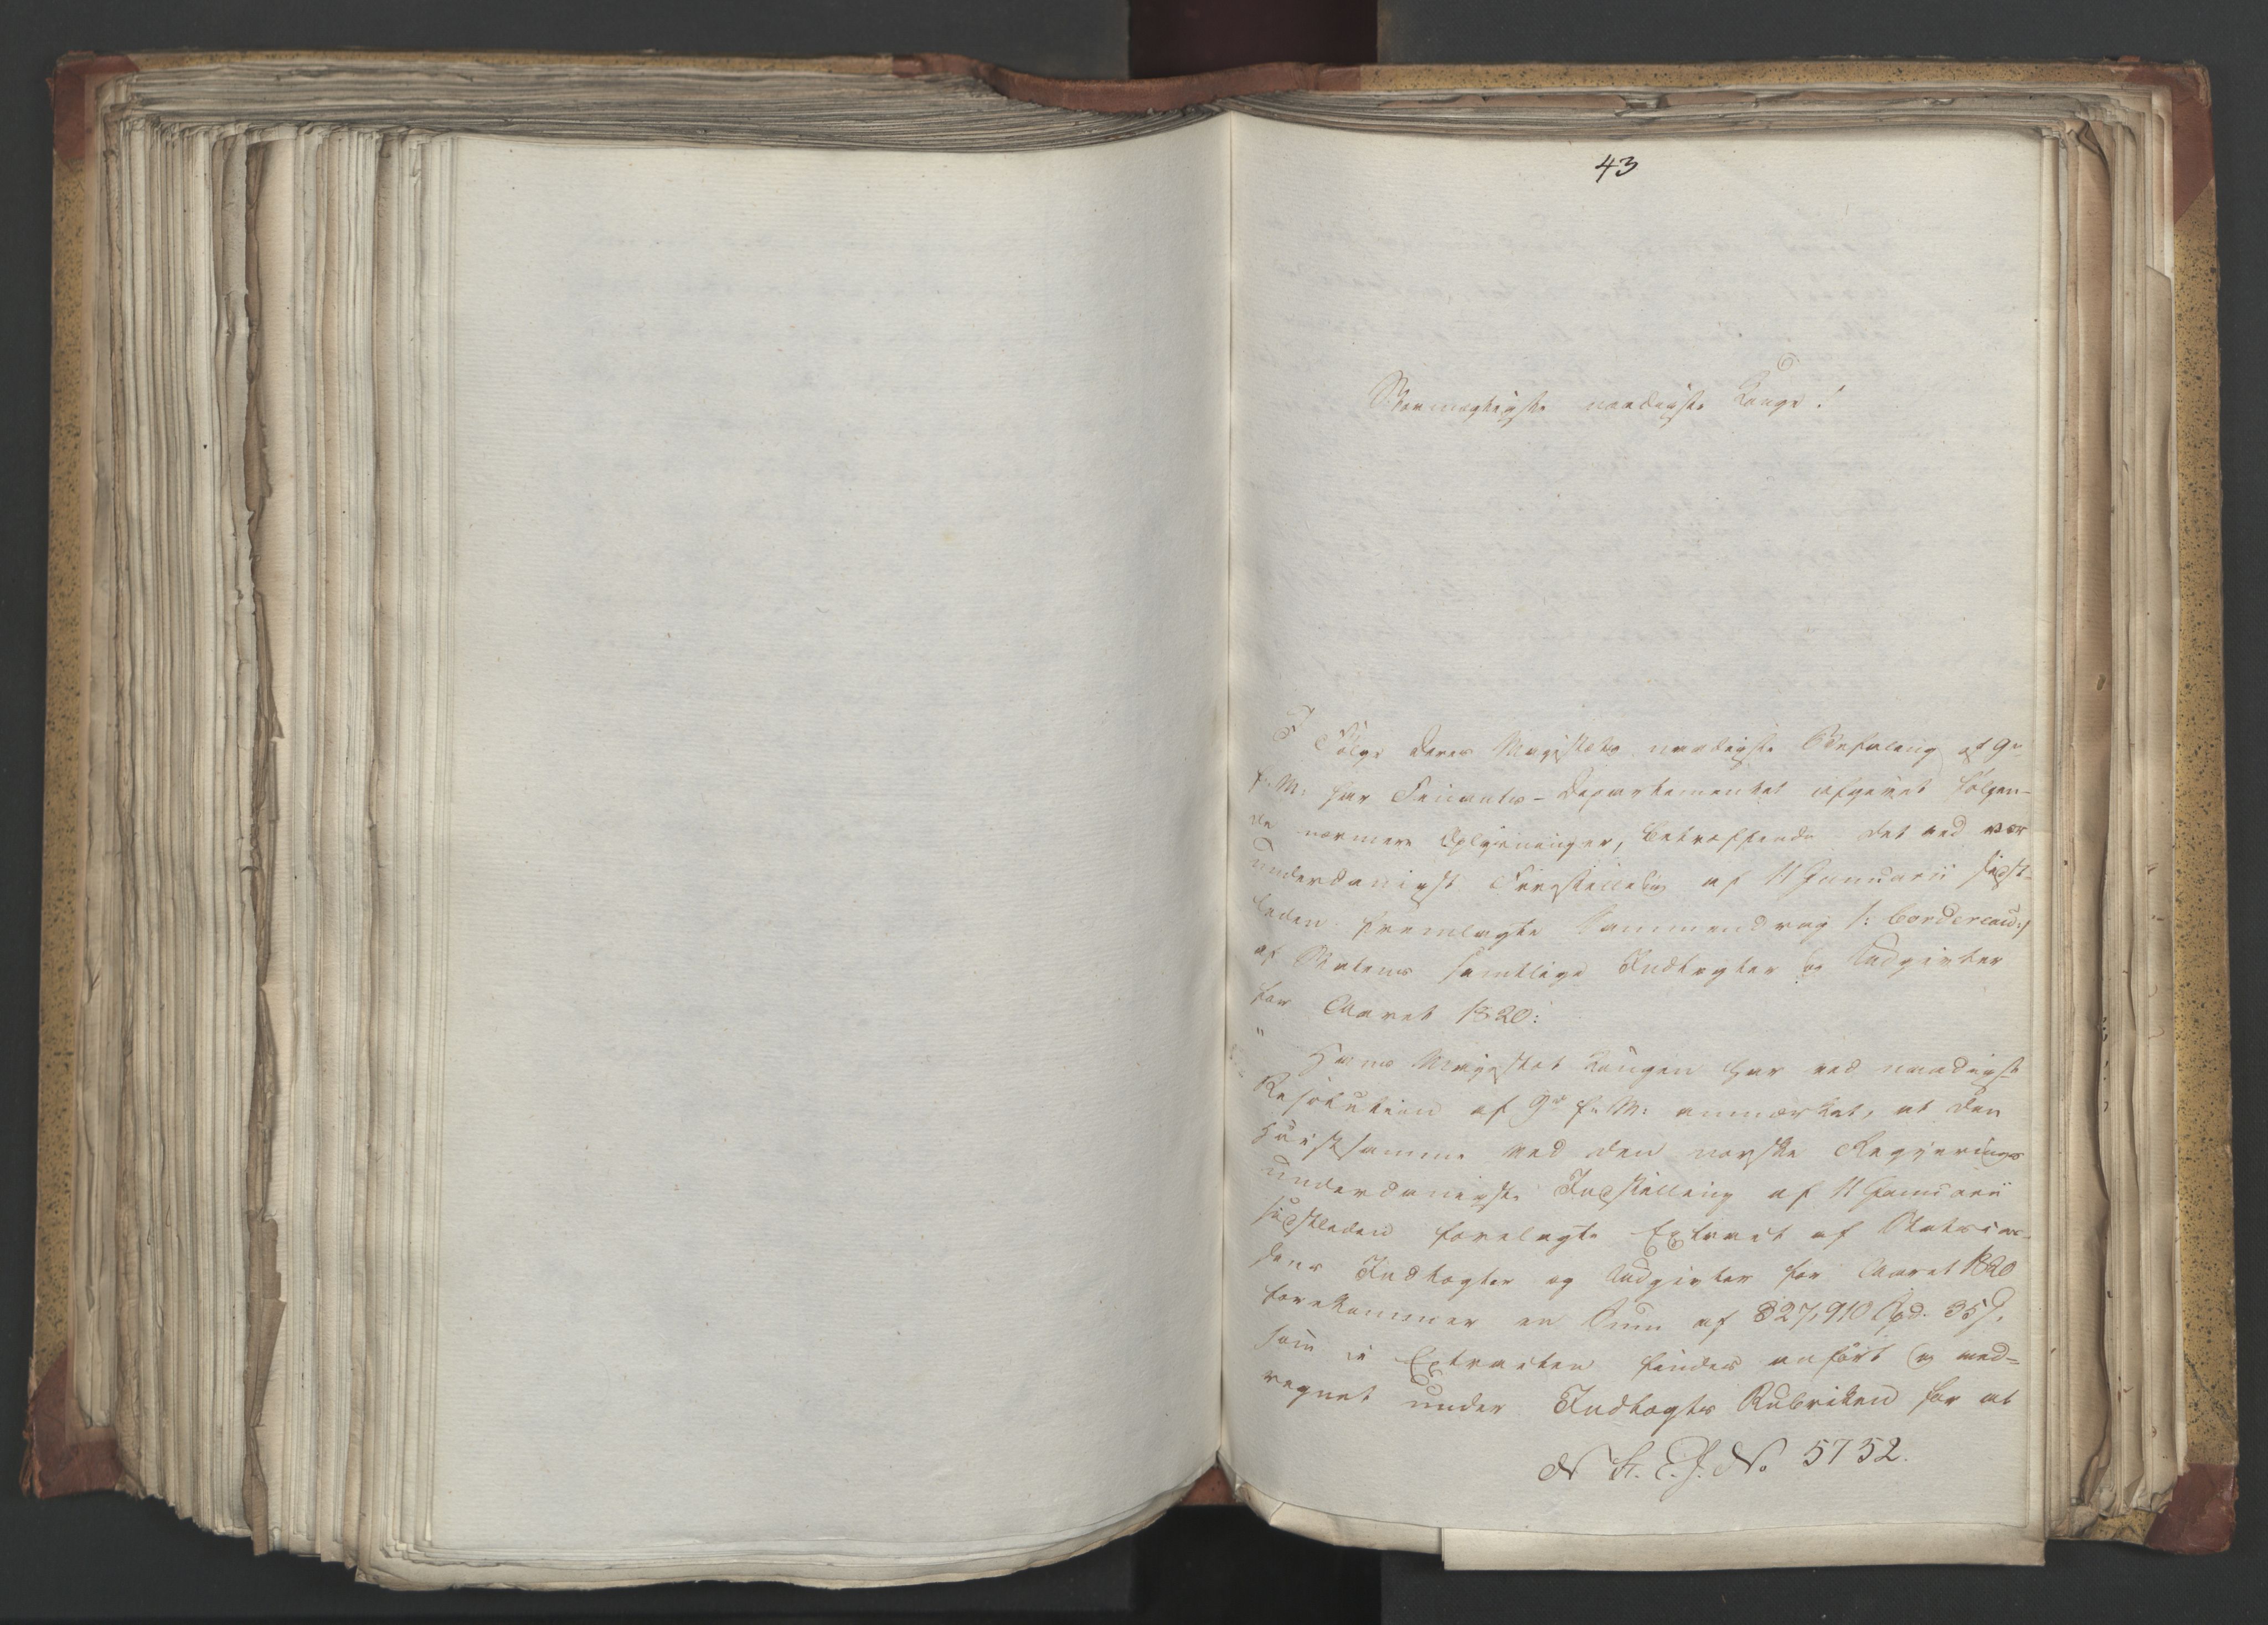 43
Stormægtigste naadigste Konge!
I Følge Deres Majestæts naadigste Befaling af 9de
f: M: har Finants-Departementet afgivet følgen-
de nærmere Oplysninger, betræffende det ved vor
underdanigst Forestilling af 11 Januarii sidst-
leden fremlagte Sammendrag /: bordereau :/
af Statens samtlige Indtægter og Udgivter
for Aaret 1820:
" Hans Majestet Kongen har ved naadigst
Resolution af 9de f: M: anmærket, at den
Høistsamme ved den norske Regjerings
underdanigste Indstilling af 11 Januarii
sidstleden forelagte Extract af Statscas-
sens Indtægter og Udgivter for Aaret 1820
forekommer en Sum af 827,910 Spd. 35 s,
som i Extracten findes anført og med-
regnet under Indtægts Rubriken for at
N St. E. J. No 5752.